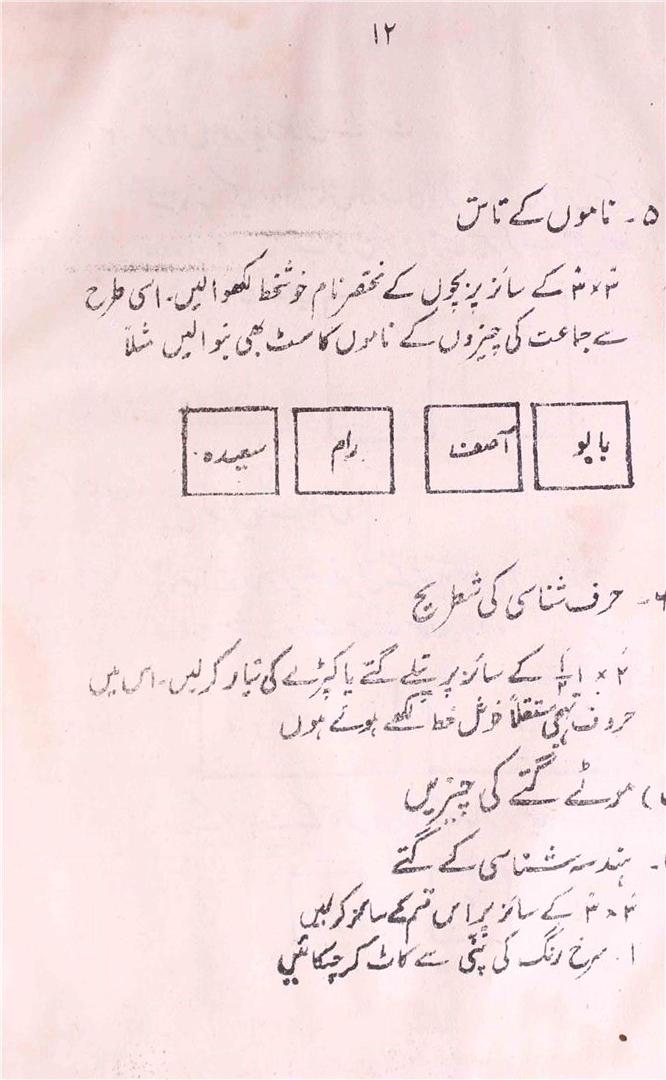 ۱۲
۵ - ناموں کے تاش
۳ً × ۳ً کے سائز پر بچوں کے مختصر نام خوشخط لکھوالیں۔ اسی طرح
سے جماعت کی چیزوں کے ناموں کا سٹ بھی بنوالیں مثلاً
باپو آصف رام سعیدہ
۶ - حرف شناسی کی شطرنج
۲ً × ۱ ۱/۲ً کے سائز پر پتلے گتے یا کپڑے کی تیار کرلیں۔ اس میں
حروف تہجی مستقلاً خوش خط لکھے ہوئے ہوں
) موٹے گتے کی چیزیں
- ہندسہ شناسی کے گتے
۳ً × ۳ً کے سائز پر اس قسم کے کرلیں
۱۔ سرخ رنگ کی پنّی سے کاٹ کر چپکائیں